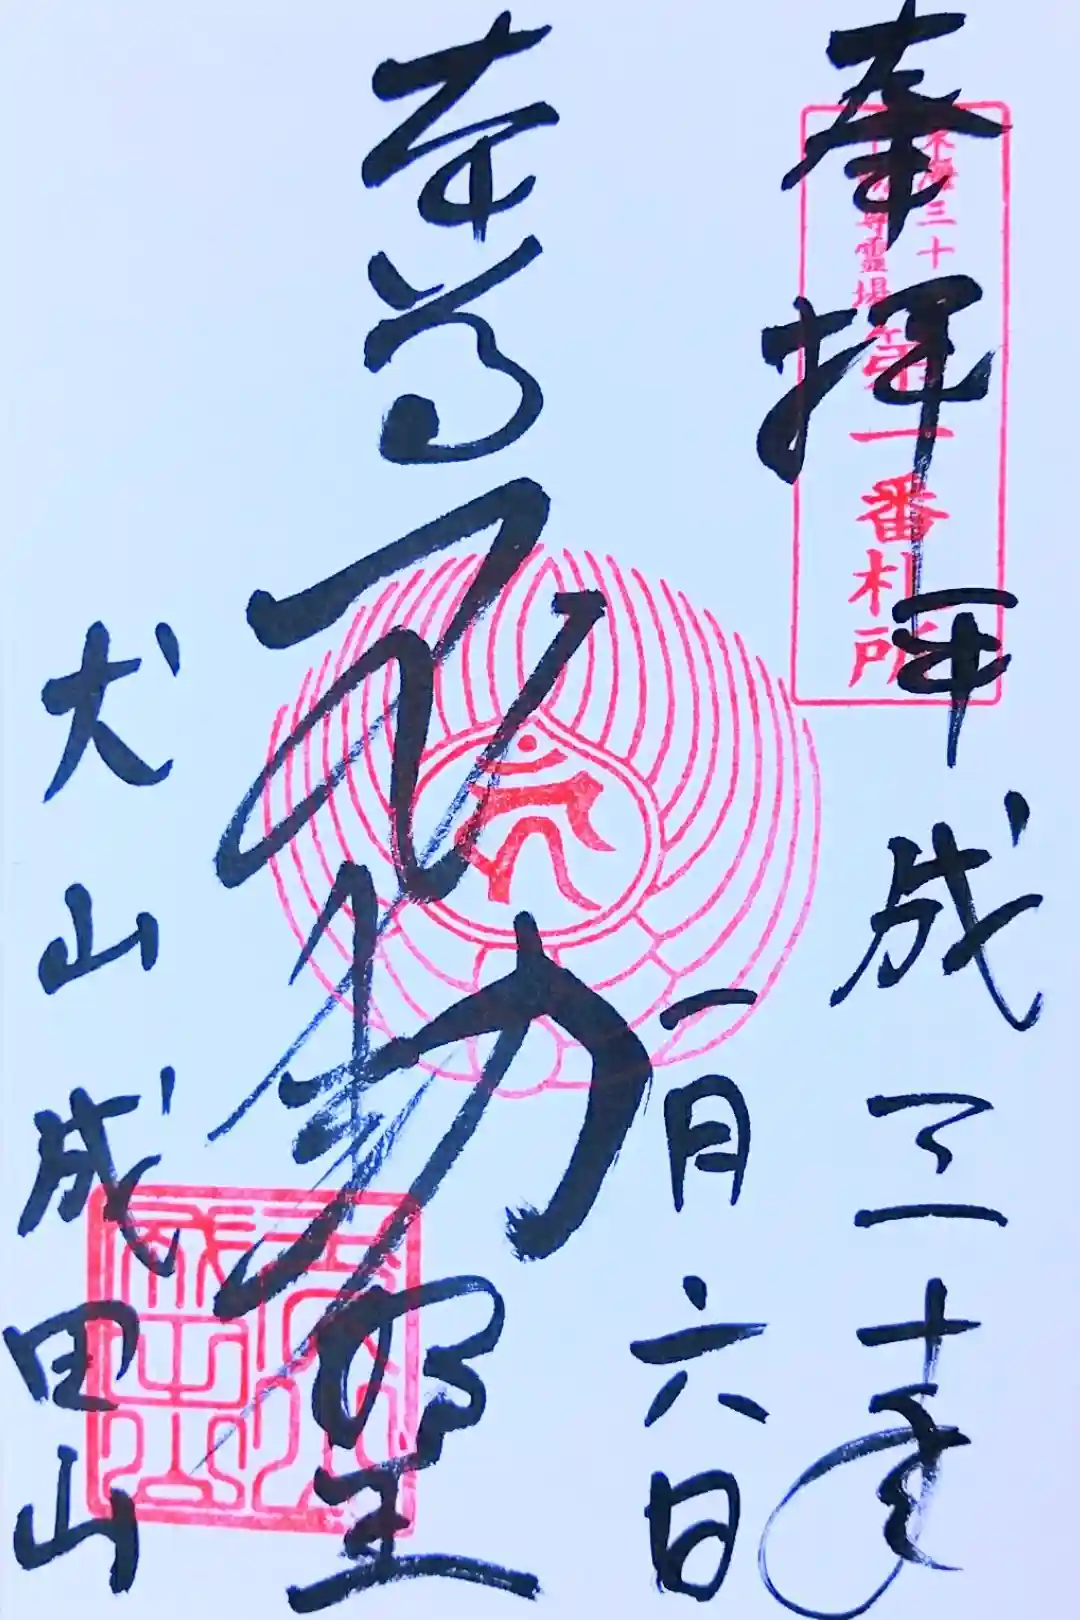 奉拝
平成三十年
一月六日
東海三十六
不動尊霊場
第一番札所
本尊不動明王
犬山成田山